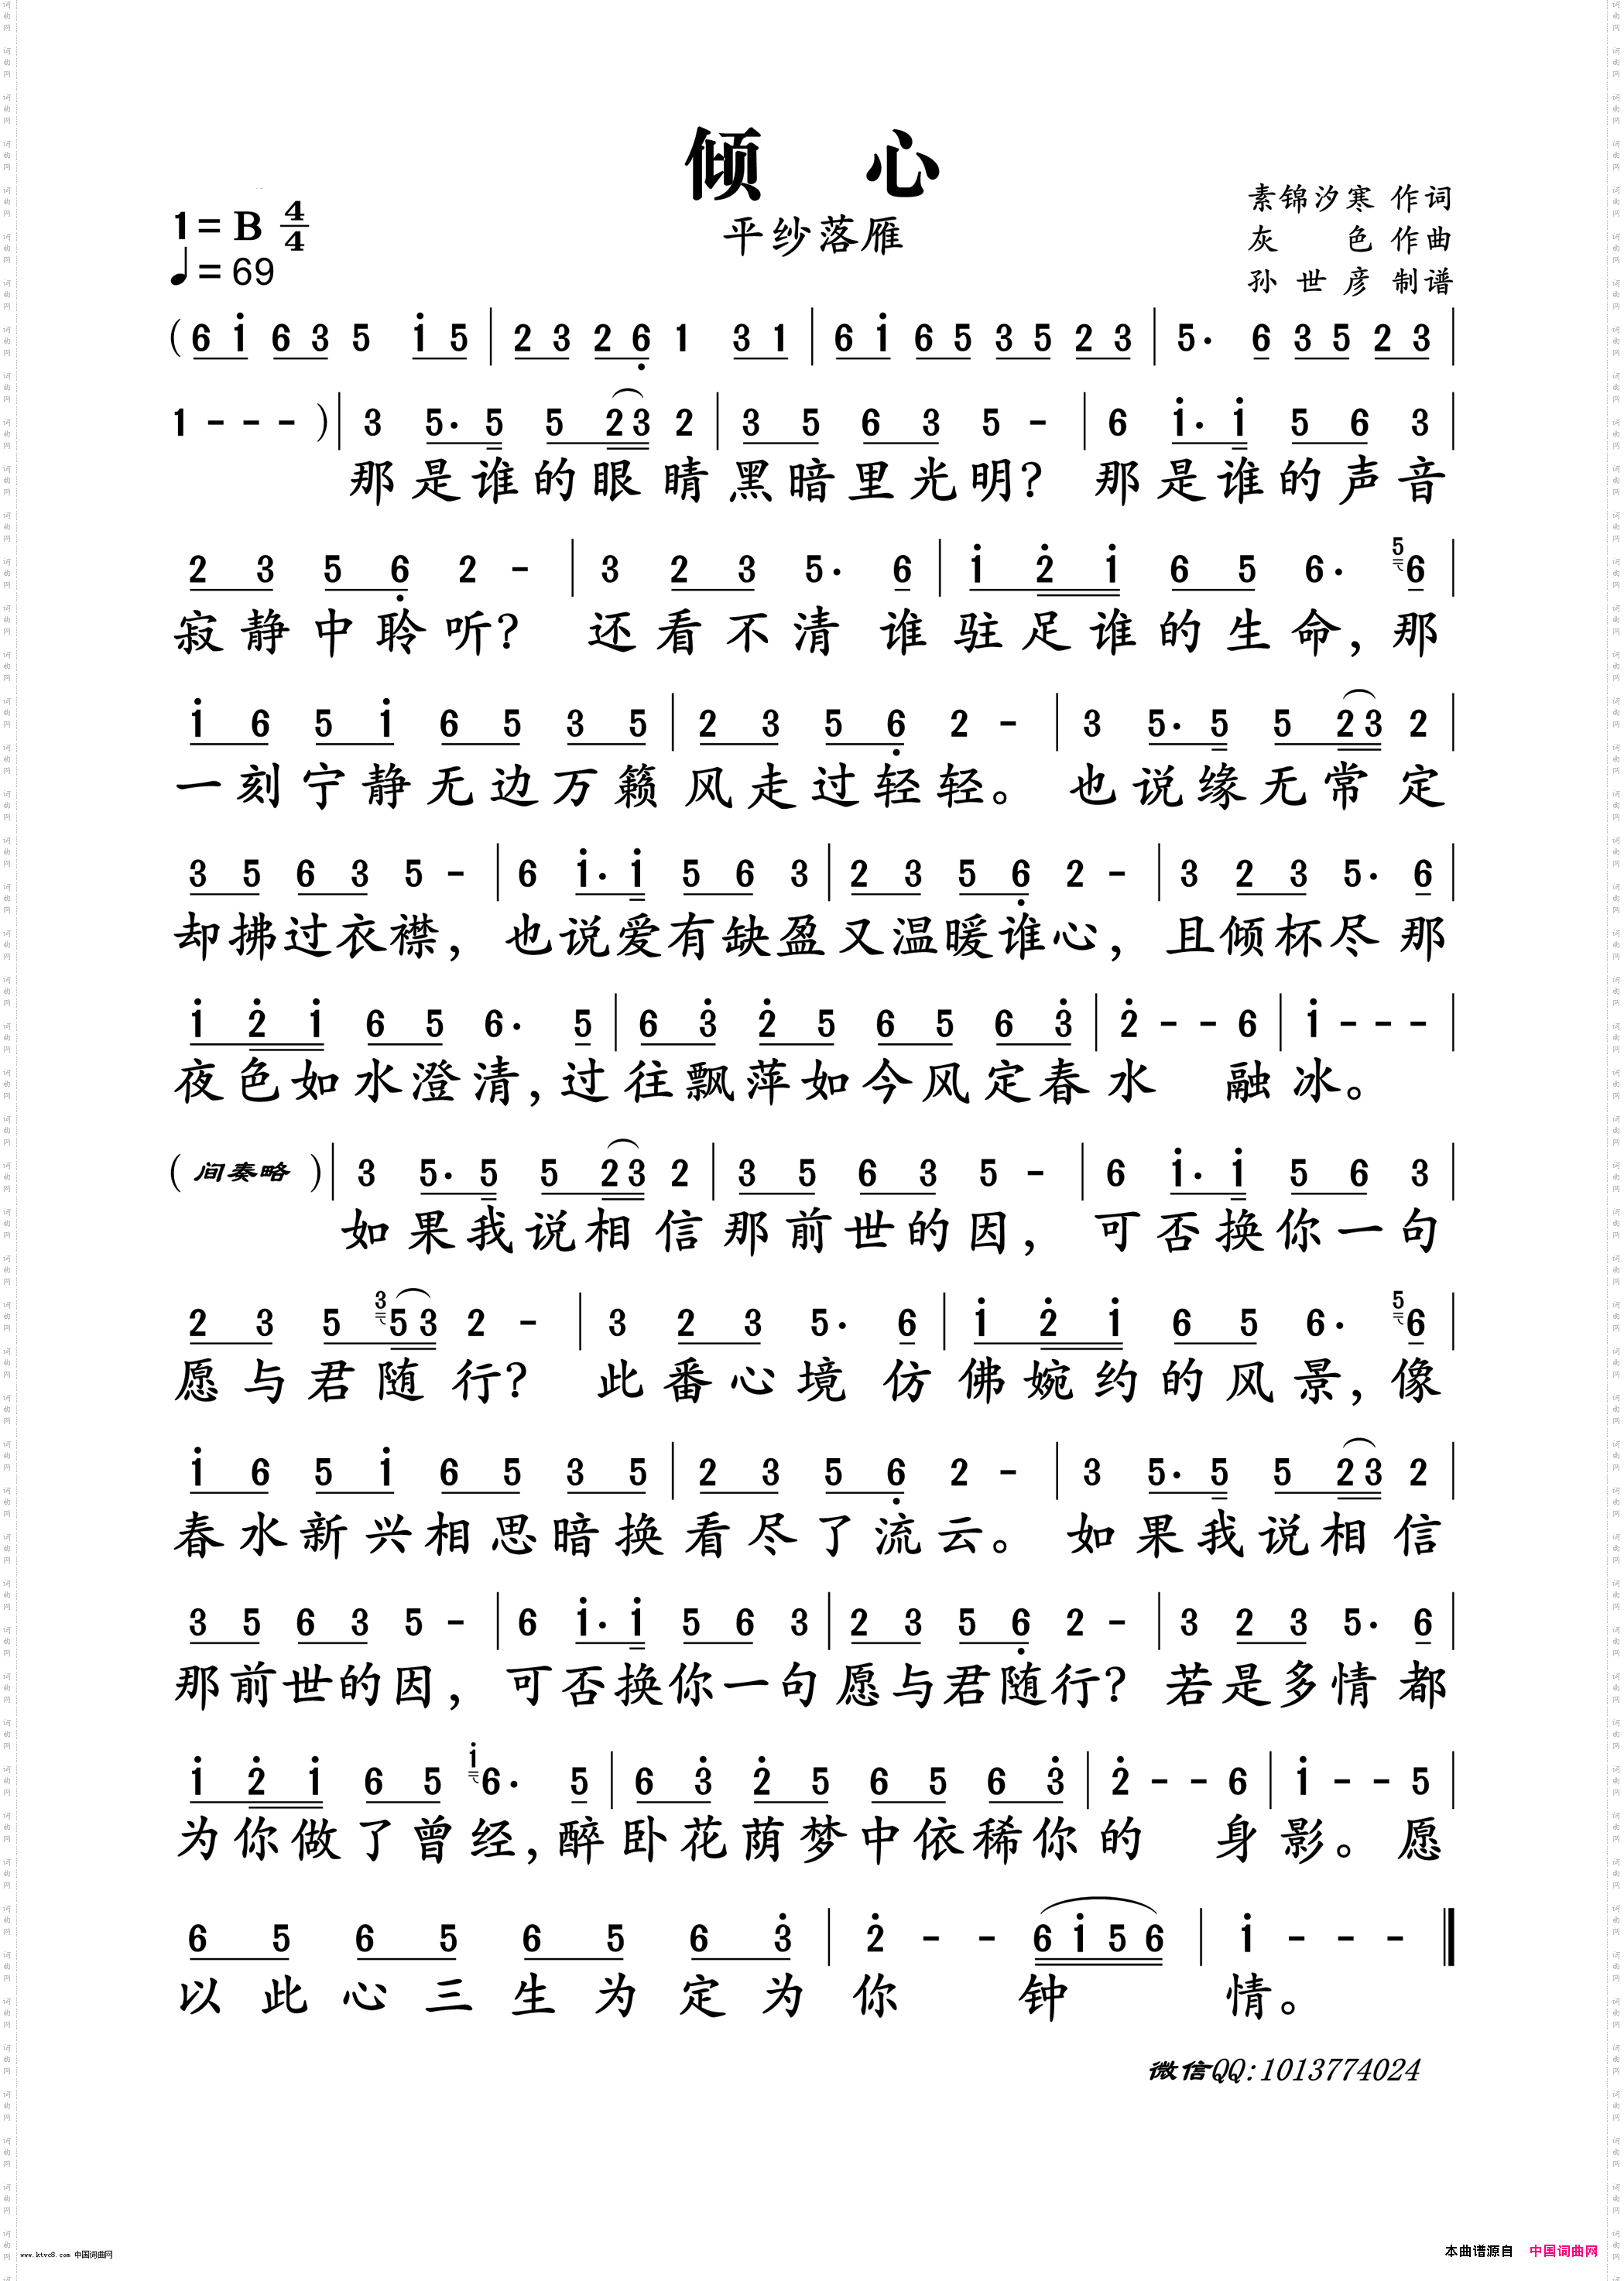 倾 心
平纱落雁
1=B 4/4
♩=69
素锦汐寒 作词
灰 色 作曲
孙 世 彦 制谱
(6 i̇ 6 3 5 i̇ 5 | 2 3 2 6̣ 1 3 1 | 6 i̇ 6 5 3 5 2 3 | 5· 6 3 5 2 3 |
1 - - - ) | 3 5· 5 5 2 3 2 | 3 5 6 3 5 - | 6 i̇· i̇ 5 6 3 |
那是谁的眼睛黑暗里光明? 那是谁的声音
2 3 5 6̣ 2 - | 3 2 3 5· 6 | i̇ 2̇ i̇ 6 5 6· 5 6 |
寂静中聆听? 还看不清谁驻足谁的生命,那
i̇ 6 5 i̇ 6 5 3 5 | 2 3 5 6̣ 2 - | 3 5· 5 5 2 3 2 |
一刻宁静无边万籁风走过轻轻。也说缘无常定
3 5 6 3 5 - | 6 i̇· i̇ 5 6 3 | 2 3 5 6̣ 2 - | 3 2 3 5· 6 |
却拂过衣襟,也说爱有缺盈又温暖谁心,且倾杯尽那
i̇ 2̇ i̇ 6 5 6· 5 | 6 3̇ 2̇ 5 6 5 6 3̇ | 2̇ - - 6 | i̇ - - - |
夜色如水澄清,过往飘萍如今风定春水 融冰。
(间奏略) | 3 5· 5 5 2 3 2 | 3 5 6 3 5 - | 6 i̇· i̇ 5 6 3 |
如果我说相信那前世的因,可否换你一句
2 3 5 3 5 3 2 - | 3 2 3 5· 6 | i̇ 2̇ i̇ 6 5 6· 5 6 |
愿与君随行? 此番心境仿佛婉约的风景,像
i̇ 6 5 i̇ 6 5 3 5 | 2 3 5 6̣ 2 - | 3 5· 5 5 2 3 2 |
春水新兴相思暗换看尽了流云。如果我说相信
3 5 6 3 5 - | 6 i̇· i̇ 5 6 3 | 2 3 5 6̣ 2 - | 3 2 3 5· 6 |
那前世的因,可否换你一句愿与君随行?若是多情都
i̇ 2̇ i̇ 6 5 i̇ 6· 5 | 6 3̇ 2̇ 5 6 5 6 3̇ | 2̇ - - 6 | i̇ - - 5 |
为你做了曾经,醉卧花荫梦中依稀你的 身影。愿
6 5 6 5 6 5 6 3̇ | 2̇ - - 6 i̇ 5 6 | i̇ - - - ‖
以此心三生为定为你 钟 情。
微信QQ:1013774024
www.ktvc8.com 中国词曲网
本曲谱源自 中国词曲网